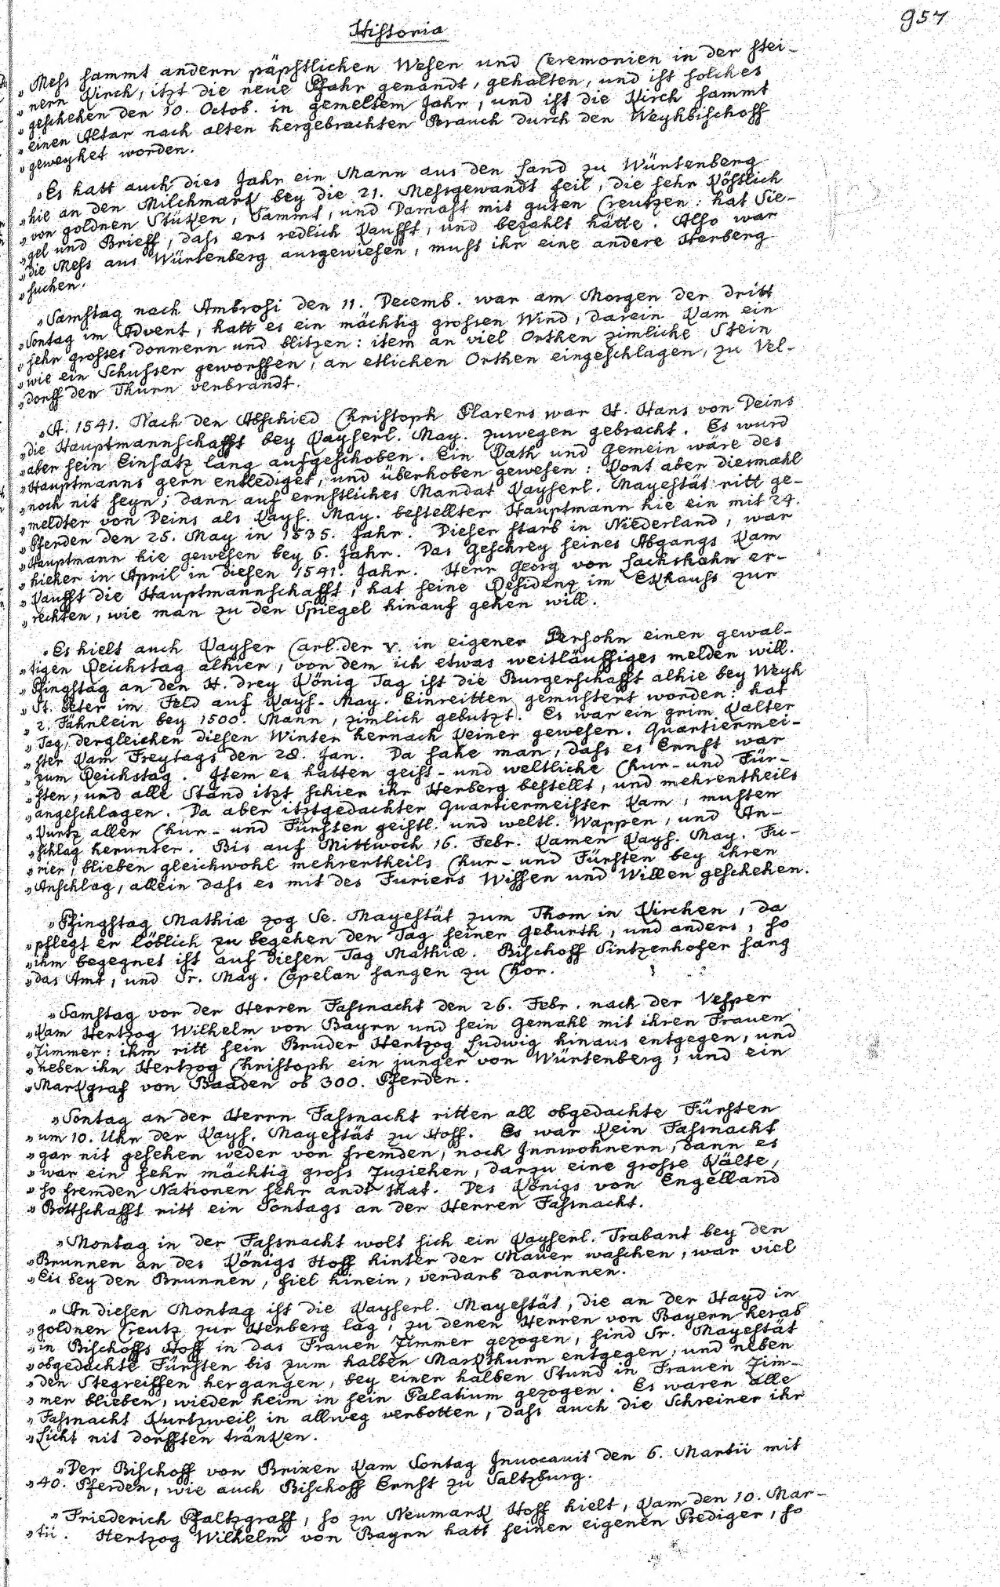 957
Historia
„ Mess sammt andern päpstlichen Wesen und Ceremonien in der stei-
„ nern Kirch, itzt die neue Pfahr genandt, gehalten, und ist solches
„ geschehen den 10. Octob. in gemeltem Jahr, und ist die Kirch sammt
„ einen Altar nach alten hergebrachten Brauch durch den Weyhbischoff
„ geweyhet worden.
„ Es hatt auch dies Jahr ein Mann aus den Land zu Würtenberg
„ hie an den Milchmark bey die 21. Messgewandt feil, die sehr köstlich
„ von goldnen Stüken, Sammt, und Damast mit guten Creutzen: hat Sie-
„ gel und Brieff, dass ers redlich kaufft, und bezahlt hätte. Also war
„ die Mess aus Würtenberg ausgewiesen, musst ihr eine andere Herberg
„ suchen.
„ Samstag nach Ambrosi den 11. Decemb. war am Morgen der dritt
„ Sontag im Advent, hatt es ein mächtig grossen Wind, darein kam ein
„ sehr grosses donnern und blitzen: item an viel Orthen zimliche Stein
„ wie ein Schusser geworffen, an etlichen Orthen eingeschlagen, zu Vel-
„ dorff den Thurn verbrandt.
„ A. 1541. Nach den Abschied Christoph Plarens war H. Hans von Deins
„ die Hauptmannschafft bey Kayserl. May. zuwegen gebracht. Es wurd
„ aber sein Einsatz lang aufgeschoben. Ein Rath und Gemein wäre des
„ Hauptmanns gern entlediget, und überhoben gewesen: Kont aber diesmahl
„ noch nit seyn; dann auf ernstliches Mandat Kayserl. Mayestät ritt ge-
„ meldter von Deins als Kays. May. bestellter Hauptmann hie ein mit 24.
„ Pferden den 25. May in 1535. Jahr. Dieser starb in Niederland, war
„ Hauptmann hie gewesen bey 6. Jahr. Das Geschrey seines Abgangs kam
„ hieher in April in diesen 1541. Jahr. Herr Georg von Lachshahn er-
„ kaufft die Hauptmannschafft, hat seine Residenz im Ekhauss zur
„ rechten, wie man zu den Spiegel hinauf gehen will.
„ Es hielt auch Kayser Carl. der V. in eigener Persohn einen gewal-
„ tigen Reichstag alhier, von dem ich etwas weitläuffiges melden will.
„ Pfingstag an den H. drey König Tag ist die Burgerschafft alhie bey Weyh
„ St. Peter im Feld auf Kays. May. Einreitten gemustert worden: hat
„ 2. Fähnlein bey 1500. Mann, zimlich gebutzt. Es war ein grim kalter
„ Tag, dergleichen diesen Winter hernach keiner gewesen. Quartiermei-
„ ster kam Freytags den 28. Jan. Da sahe man, dass es Ernst war
„ zum Reichstag. Item es hatten geist- und weltliche Chur- und Für-
„ sten, und alle Ständ itzt schier ihr Herberg bestellt, und mehrentheils
„ angeschlagen. Da aber itztgedachter Quartiermeister kam, musten
„ kurtz aller Chur- und Fürsten geistl. und weltl. Wappen, und An-
„ schlag herunter. Bis auf Mittwoch 16. Febr. kamen Kays. May. Fu-
„ rier, blieben gleichwohl mehrentheils Chur- und Fürsten bey ihren
„ Anschlag, allein dass es mit des Furiers Wissen und Willen geschehen.
„ Pfingstag Mathiæ zog Se. Mayestät zum Thom in Kirchen, da
„ pflegt er löblich zu begehen den Tag seiner Geburth, und anders, so
„ ihm begegnet ist auf diesen Tag Mathiæ. Bischoff Sintzenhofer sang
„ das Amt, und Sr. May. Capelan sangen zu Chor.
„ Samstag vor der Herren Fassnacht den 26. Febr. nach der Vesper
„ kam Hertzog Wilhelm von Bayrn und sein Gemahl mit ihren Frauen
„ Zimmer: ihm ritt sein Bruder Hertzog Ludwig hinaus entgegen, und
„ neben ihn Hertzog Christoph ein junger von Würtenberg, und ein
„ Markgraf von Baaden ob 300. Pferden.
„ Sontag an der Herrn Fassnacht ritten all obgedachte Fürsten
„ um 10. Uhr der Kays. Mayestät zu Hoff. Es war kein Fassnacht
„ gar nit gesehen weder von fremden, noch Innwohnern, dann es
„ war ein sehr mächtig gross Zuziehen, darzu eine grosse Kälte,
„ so fremden Nationen sehr andt that. Des Königs von Engelland
„ Bottschafft ritt ein Sontags an der Herren Fassnacht.
„ Montag in der Fassnacht wolt sich ein Kayserl. Trabant bey den
„ Brunnen an des Königs Hoff hinter der Mauer waschen, war viel
„ Eis bey den Brunnen, fiel hinein, verdarb darinnen.
„ An diesen Montag ist die Kayserl. Mayestät, die an der Hayd in
„ goldnen Creutz zur Herberg lag, zu denen Herren von Bayern herab
„ in Bischoffs Hoff in das Frauen Zimmer gezogen, sind Sr. Mayestät
„ obgedachte Fürsten bis zum halben Markthurn entgegen, und neben
„ den Stegreiffen hergangen, bey einer halben Stund in Frauen Zim-
„ mer blieben, wieder heim in sein Palatium gezogen. Es waren alle
„ Fassnacht Kurtzweil in allweg verbotten, dass auch die Schreiner ihr
„ Licht nit dorfften tränken.
„ Der Bischoff von Brixen kam Sontag Invocavit den 6. Martii mit
„ 40. Pferden, wie auch Bischoff Ernst zu Saltzburg.
„ Friederich Pfaltzgraff, so zu Neumark Hoff hielt, kam den 10. Mar-
„ tii. Hertzog Wilhelm von Bayrn hatt seinen eigenen Prediger, so